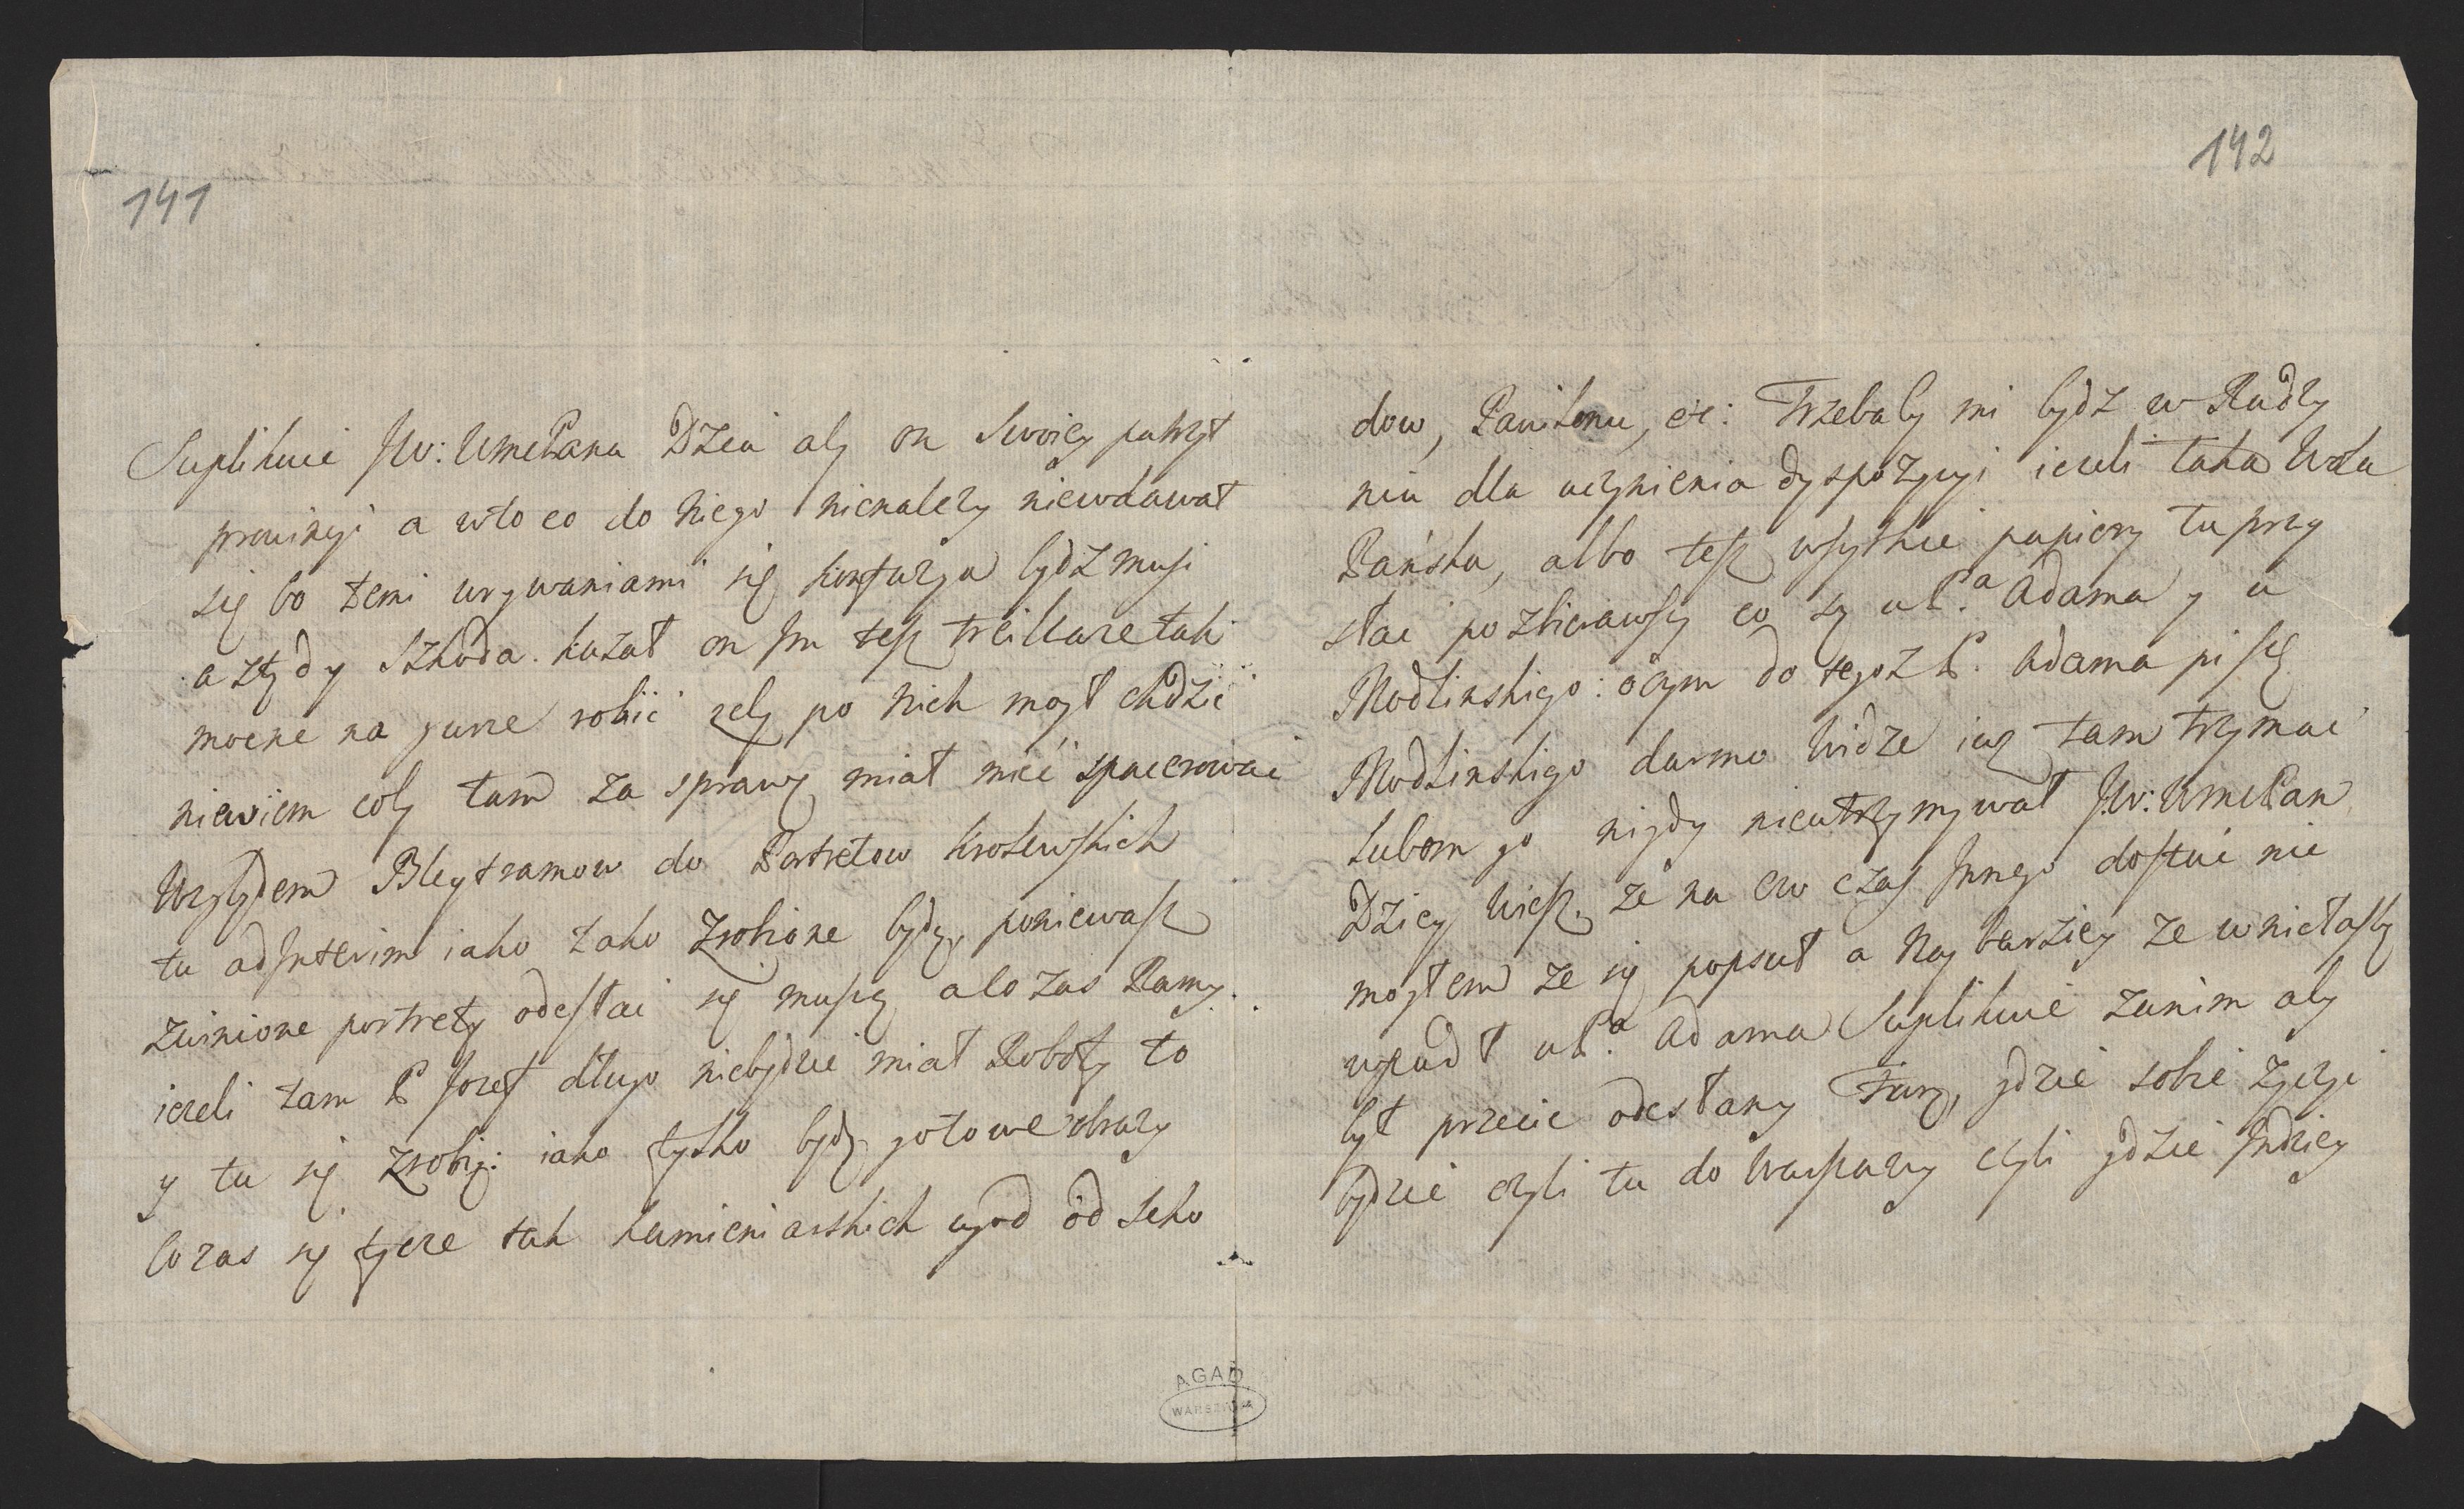 141
Suplikuie JW: WmcPana Dzeia aby on Swoiey patrzył
prowincyi a wto co do niego nienalezy niewdawał
się bo temi urywaniami się konfuzya bydz musi
a ztądy Szkoda. kazał on Im tesz trei
mocne na gurze robić zeby po nich mogł chdzić
niewiem coby tam za sprawę miał mieć spacerować
Względem Bleytramow do Portretow krolewskich
tu adInterim iako tako zrobione będą, poniewasz
zwinione portrety odesłać się muszą a lo zas Ramy.
iezeli tam P Jozef długo niebędzie miał Roboty to
y tu się zrobią: iako tylko będą gotowe obrazy
Co zas się tycze tak kamieniarskich ugod od Seko
142
dow, Pawilonu, etc: Trzebaby mi bydz w Radzy
niu dla uczynienia dyspozycyi iezeli taka Wola
Pańska, albo tesz wszytkie papiery tu przy
słać pozbierawszy co są u P.ª Adama y u
Modlinskiego: oczym do tegoz P. Adama piszę
Modlinskiego darmo widze iuz tam trzymać
Lubom go nigdy nieutrzymywał JW: WmcPan
Dziey wiesz, ze na ow czas Innego dostać nie
mogłem ze się popsuł a Naybarziey ze wniełaskę
wpadł u P.ª Adama Suplikuie zanim aby
był przecie odesłany Furą, gdzie sobie zyczyć
będzie czyli tu do Warszawy czyli gdzie Indziey
AGAD
WARSZAWA